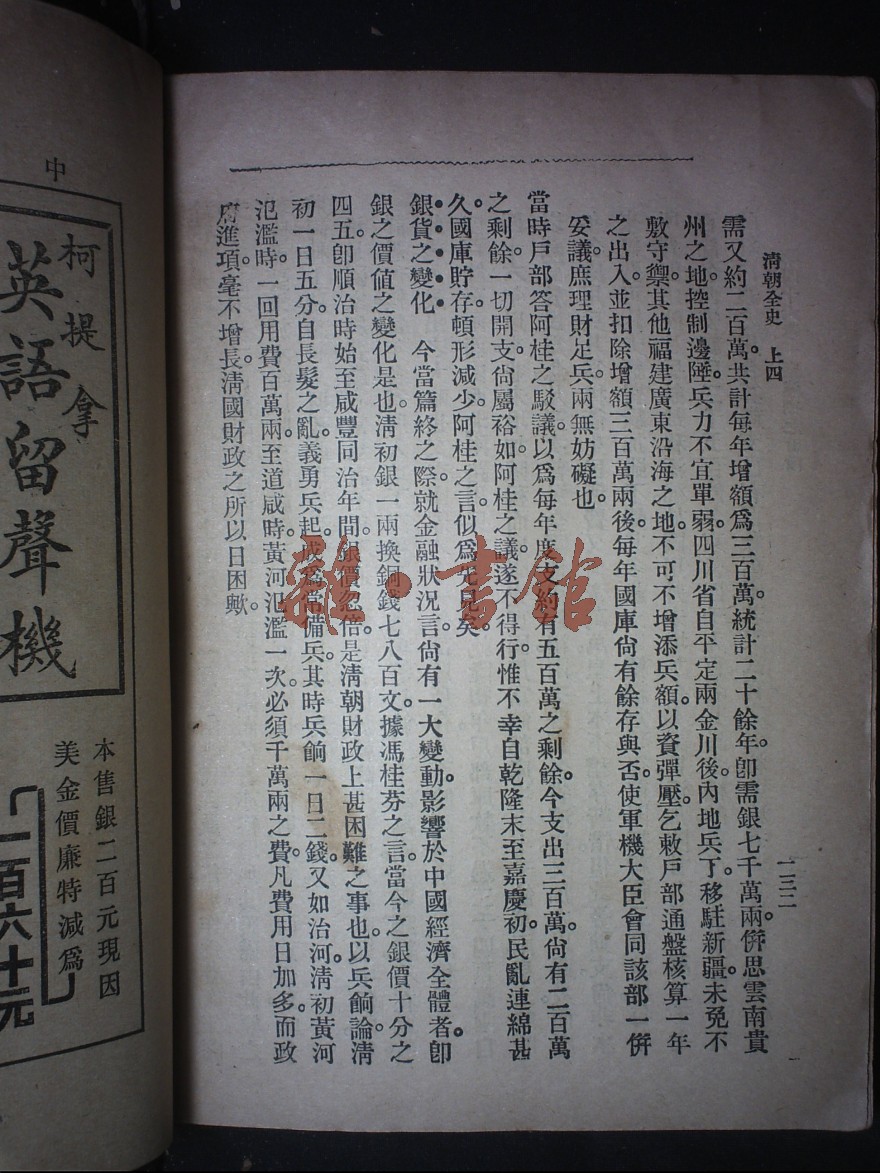 清朝全史 上四
一三二
需又約二百萬。共計每年增額爲三百萬。統計二十餘年。卽需銀七千萬兩。倂思雲南貴
州之地。控制邊陲。兵力不宜單弱。四川省自平定兩金川後。內地兵丁。移駐新疆。未免不
敷守禦。其他福建廣東沿海之地。不可不增添兵額。以資彈壓。乞敕戶部通盤核算一年
之出入。並扣除增額三百萬兩後。每年國庫尙有餘存與否。使軍機大臣會同該部一倂
妥議。庶理財足兵。兩無妨礙也。
當時戶部答阿桂之駁議。以爲每年度支約有五百萬之剩餘。今支出三百萬。尙有二百萬
之剩餘。一切開支。尙屬裕如。阿桂之議。遂不得行。惟不幸自乾隆末至嘉慶初。民亂連綿甚
久。國庫貯存。頓形減少。阿桂之言。似爲先見矣。
銀貨之變化 今當篇終之際。就金融狀況言。尙有一大變動影響於中國經濟全體者。卽
銀之價值之變化是也。淸初銀一兩換銅錢七八百文。據馮桂芬之言。當今之銀價十分之
四五。卽順治時始至咸豐同治年間。銀價忽倍。是淸朝財政上甚困難之事也。以兵餉論。淸
初一日五分。自長髮之亂。義勇兵起。或爲常備兵。其時兵餉一日二錢。又如治河。淸初黃河
氾濫時。一回用費百萬兩。至道咸時。黃河氾濫一次。必須千萬兩之費。凡費用日加多。而政
府進項。毫不增長。淸國財政之所以日困歟。
中
柯提拿
英語留聲機
本售銀二百元現因
美金價廉特減爲
一百六十元
雜·書館